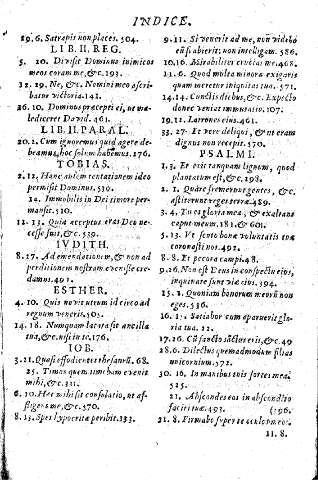 INDICE.
29. 6. Satrapis non places. 504.
LIB. II. REG.
5. 20. Divisit Dominus inimicos
meos coram me, &c. 193.
12. 29. Ne, &c. Nomini meo ascri-
batur victoria. 142.
16. 10. Dominus præcepit ei, ut ma-
lediceret David. 461.
LIB. II. PARAL.
20. 1. Cum ignoremus quid agere de-
beamus, hoc solum habemus. 176.
TOBIAS.
2. 12. Hanc autem tentationem ideo
permisit Dominus. 510.
14. Immobilis in Dei timore per-
mansit. 510.
12. 13. Quia acceptus eras Deo ne-
cesse fuit, &c. 539.
IVDITH.
8. 27. Ad emendationem, & non ad
perditionem nostram evenisse cre-
damus. 401.
ESTHER.
4. 10. Quis novit utrum id circo ad
regnum veneris. 505.
14. 18. Numquam lætata sit ancilla
tua, & nisi in te. 176.
IOB.
3. 21. Quasi effodientes thesaurū. 68.
25. Timor quem timebam evenit
mihi, &c. 311.
6. 10. Hæc mihi sit consolatio, ut af-
fligens me, &c. 570.
8. 13. Spes hypocritæ peribit. 133.
9. 11. Si venerit ad me, non videbo
eū si abierit: non intelligam. 586.
10. 16. Mirabiliter crucias me. 468.
11. 6. Quod multo minora exigaris
quam meretur iniquitas tua. 571.
14. 14. Cunctis diebus, &c. Expecto
donec veniat immutatio. 107.
19. 12. Latrones eius. 461.
33. 27. Et vere deliqui, & ut eram
dignus non recepi. 570.
PSALMI.
1. 3. Et erit tanquam lignum, quod
plantatum est, &c. 198.
2. 1. Quare fremuerunt gentes, &c.
astiterunt reges terræ. 489.
3. 4. Tu es gloria mea, & exaltans
caput meum. 181. & 601.
5. 13. Vt scuto bonæ voluntatis tuæ
coronasti nos. 492.
8. 8. Et pecora campi. 48.
9. 26. Non est Deus in conspectu eius,
inquinatæ sunt viæ eius. 394.
15. 2. Quoniam bonorum meorū non
eges. 536.
16. 15. Satiabor cum apparuerit glo-
ria tua. 22.
17. 26. Cū sancto sāctus eris, &c. 49
28. 6. Dilectus quemadmodum filius
unicornium. 372.
30. 16. In manibus tuis sortes meæ.
525.
21. Abscondes eos in abscondito
faciei tuæ. 493.
21. 8. Firmabo super te
11. 8.